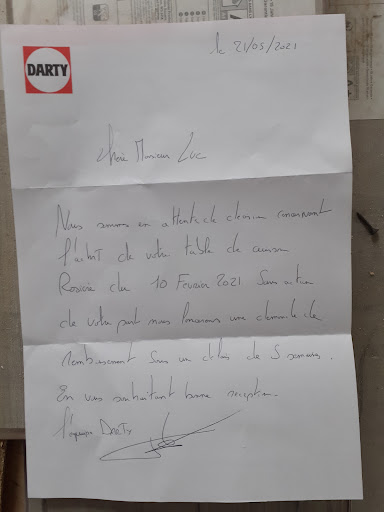 DARTY
le 21/05/2021
Cher Monsieur Luc
Nous sommes en attente de décision concernant
l'achat de votre table de cuisson
Rosière du 10 Février 2021 Sans action
de votre part nous lancerons une demande de
remboursement sous un délai de 5 semaines.
En vous souhaitant bonne reception.
l'équipe DARTY